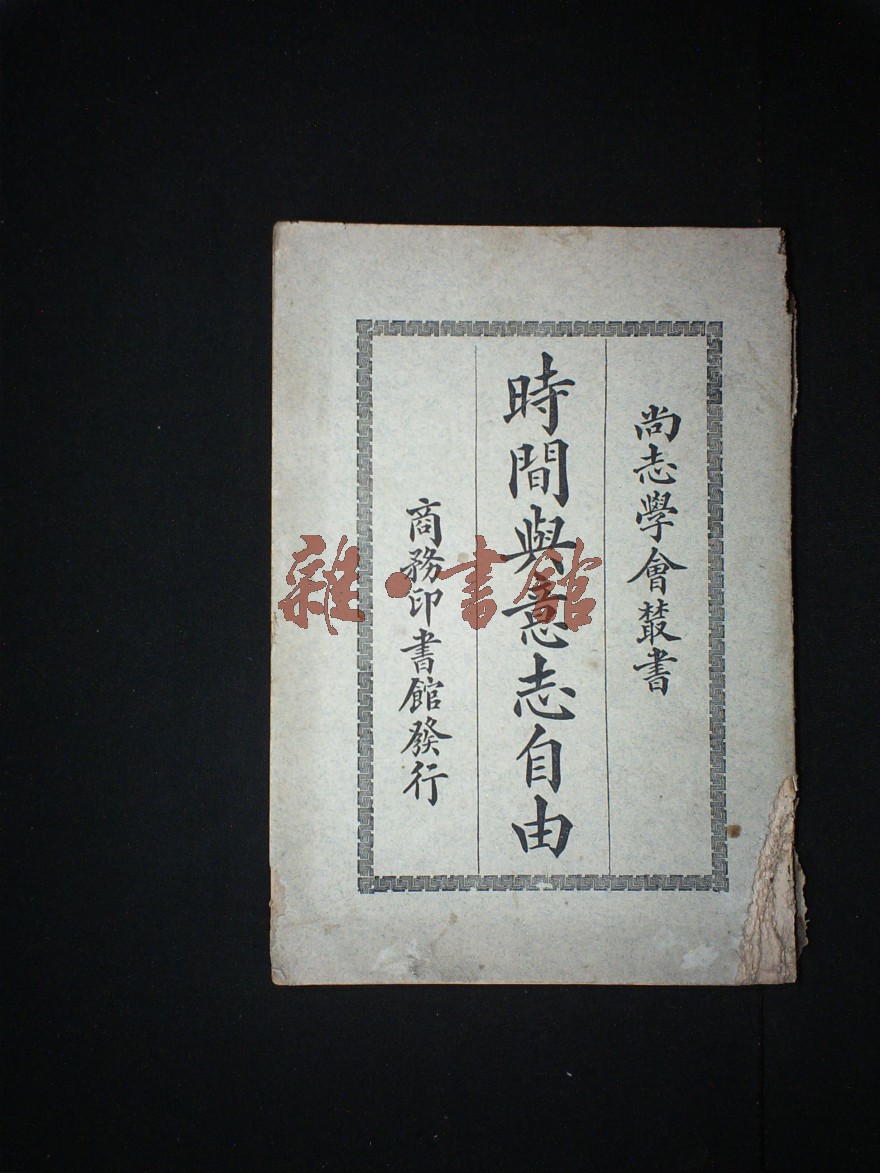 尚志學會叢書
時間與意志自由
商務印書館發行
雜·書館